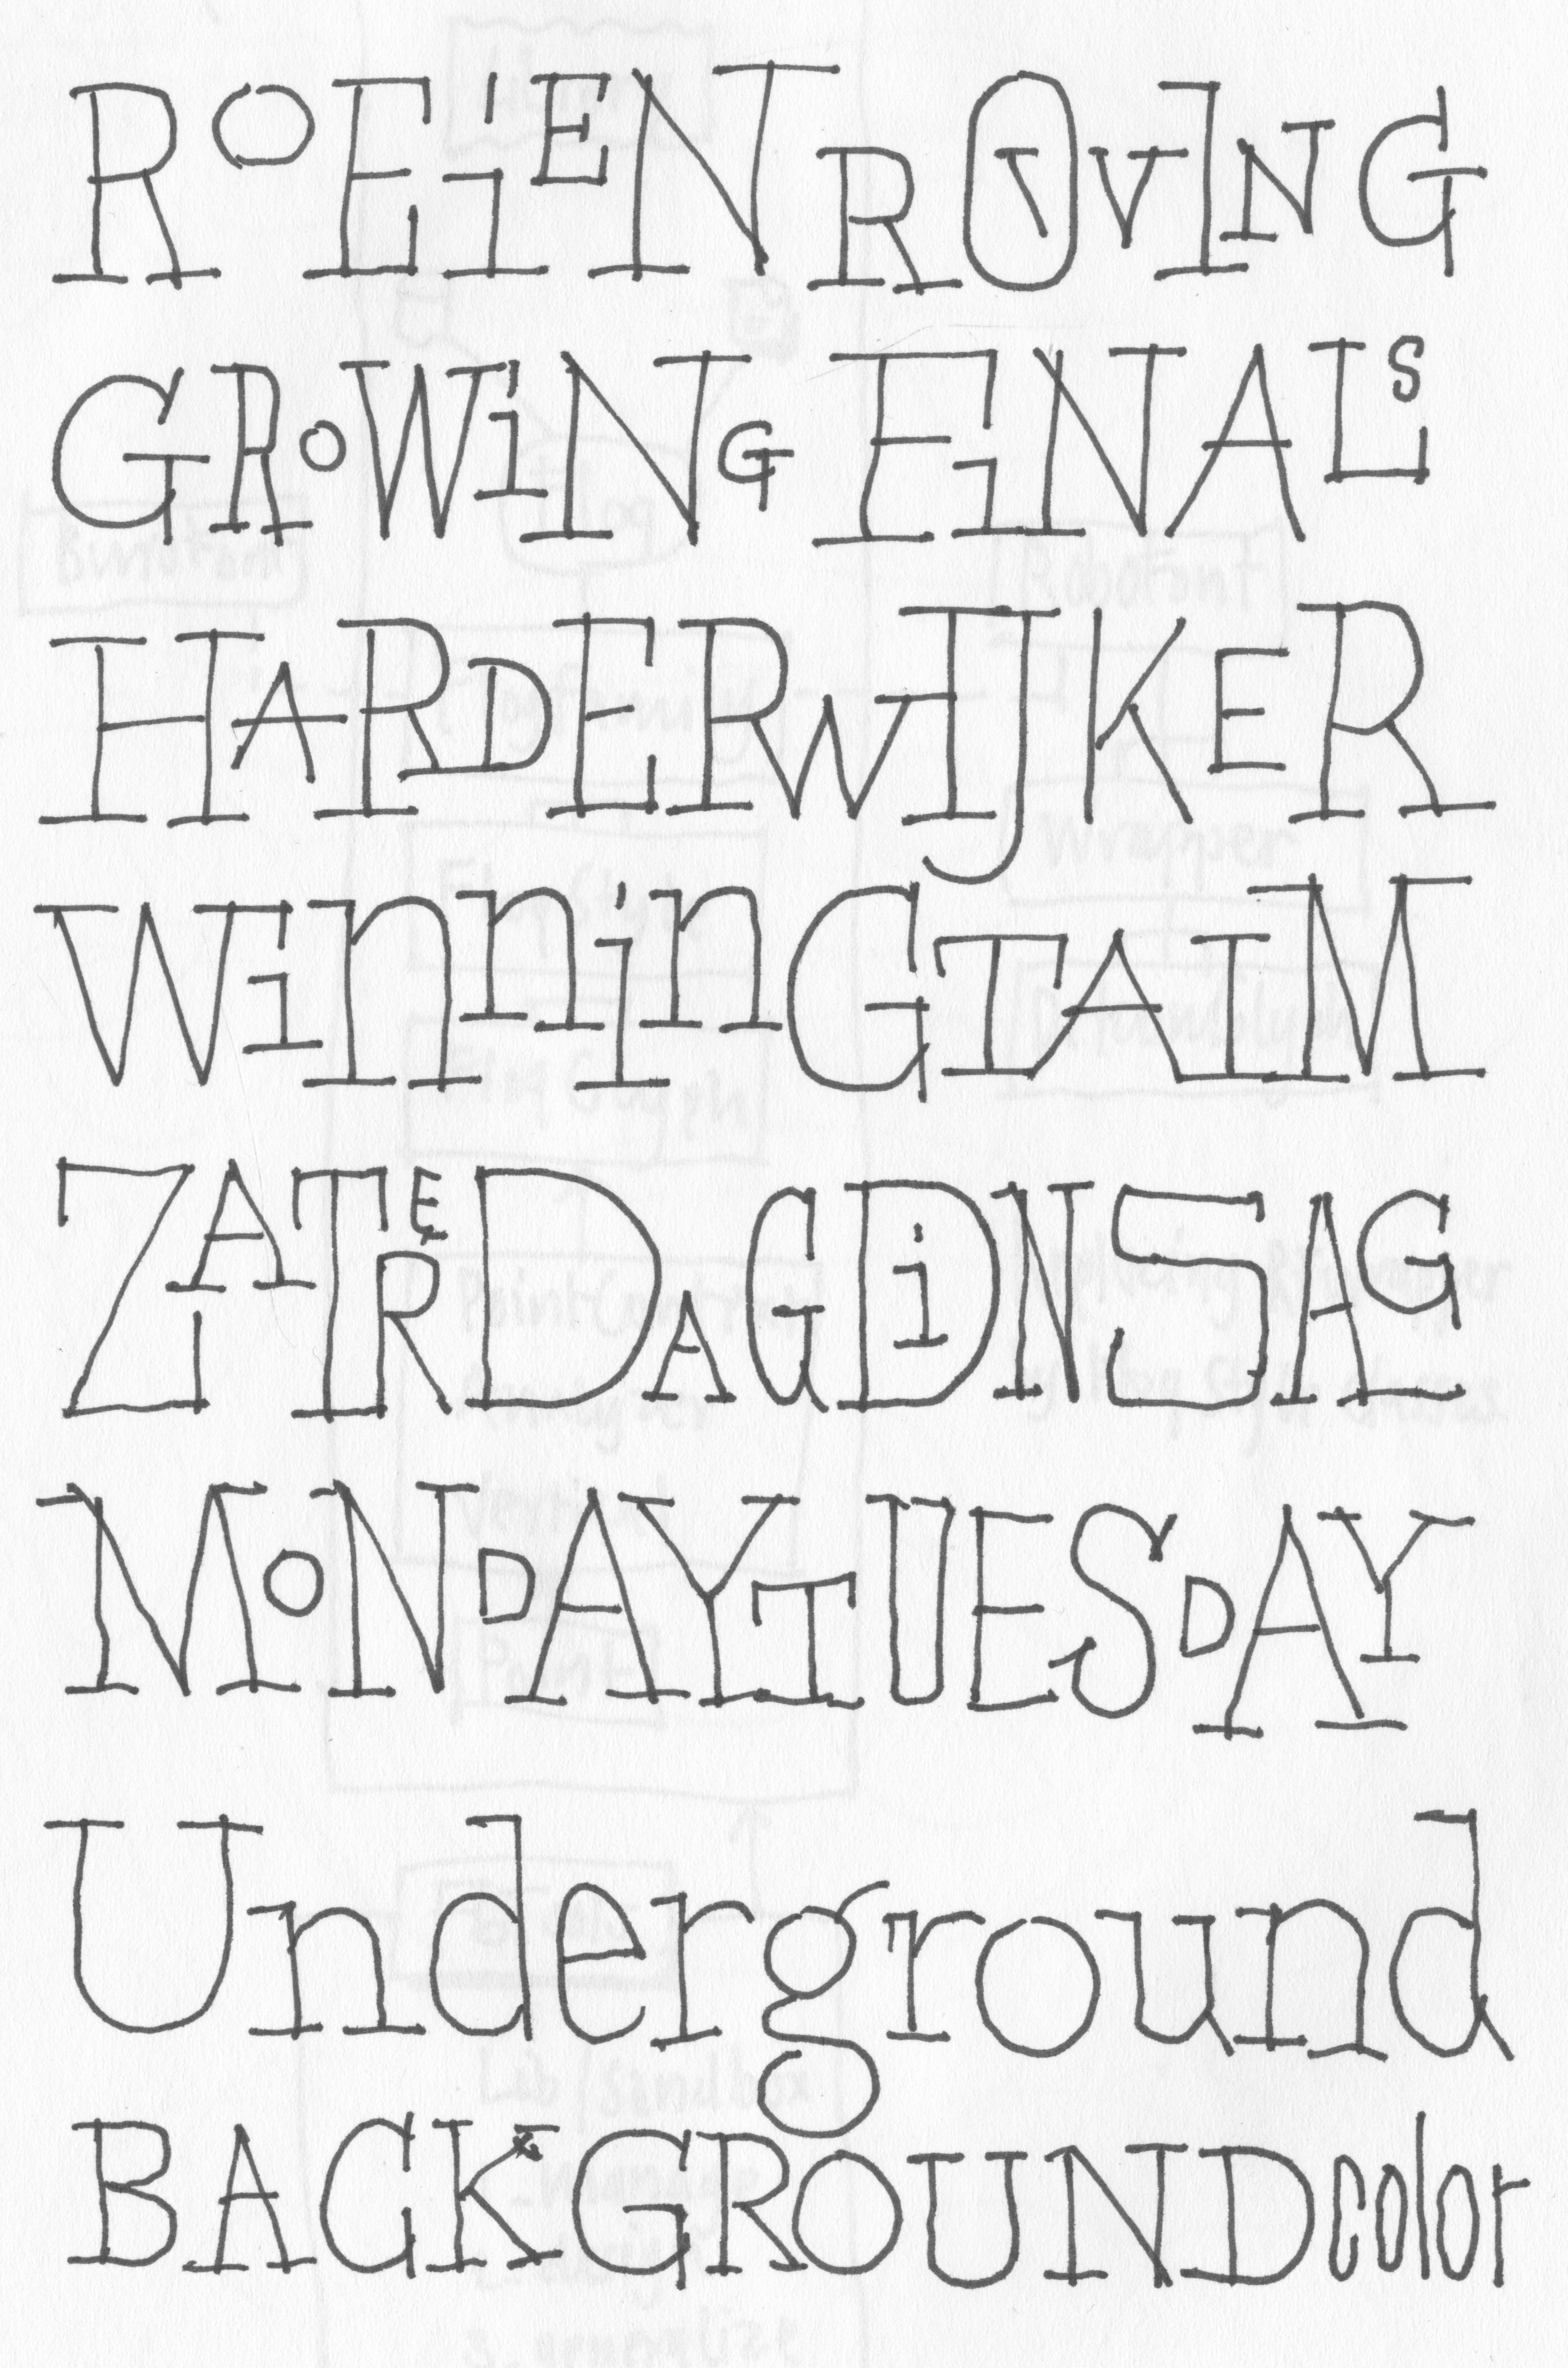 ROEiEN ROVING
GROWiNG FiNALS
HARDERWIJKER
WinninGTAIM
ZATERDAGDiNSAG
MONDAYTUESDAY
Underground
BACKGROUNDcolor